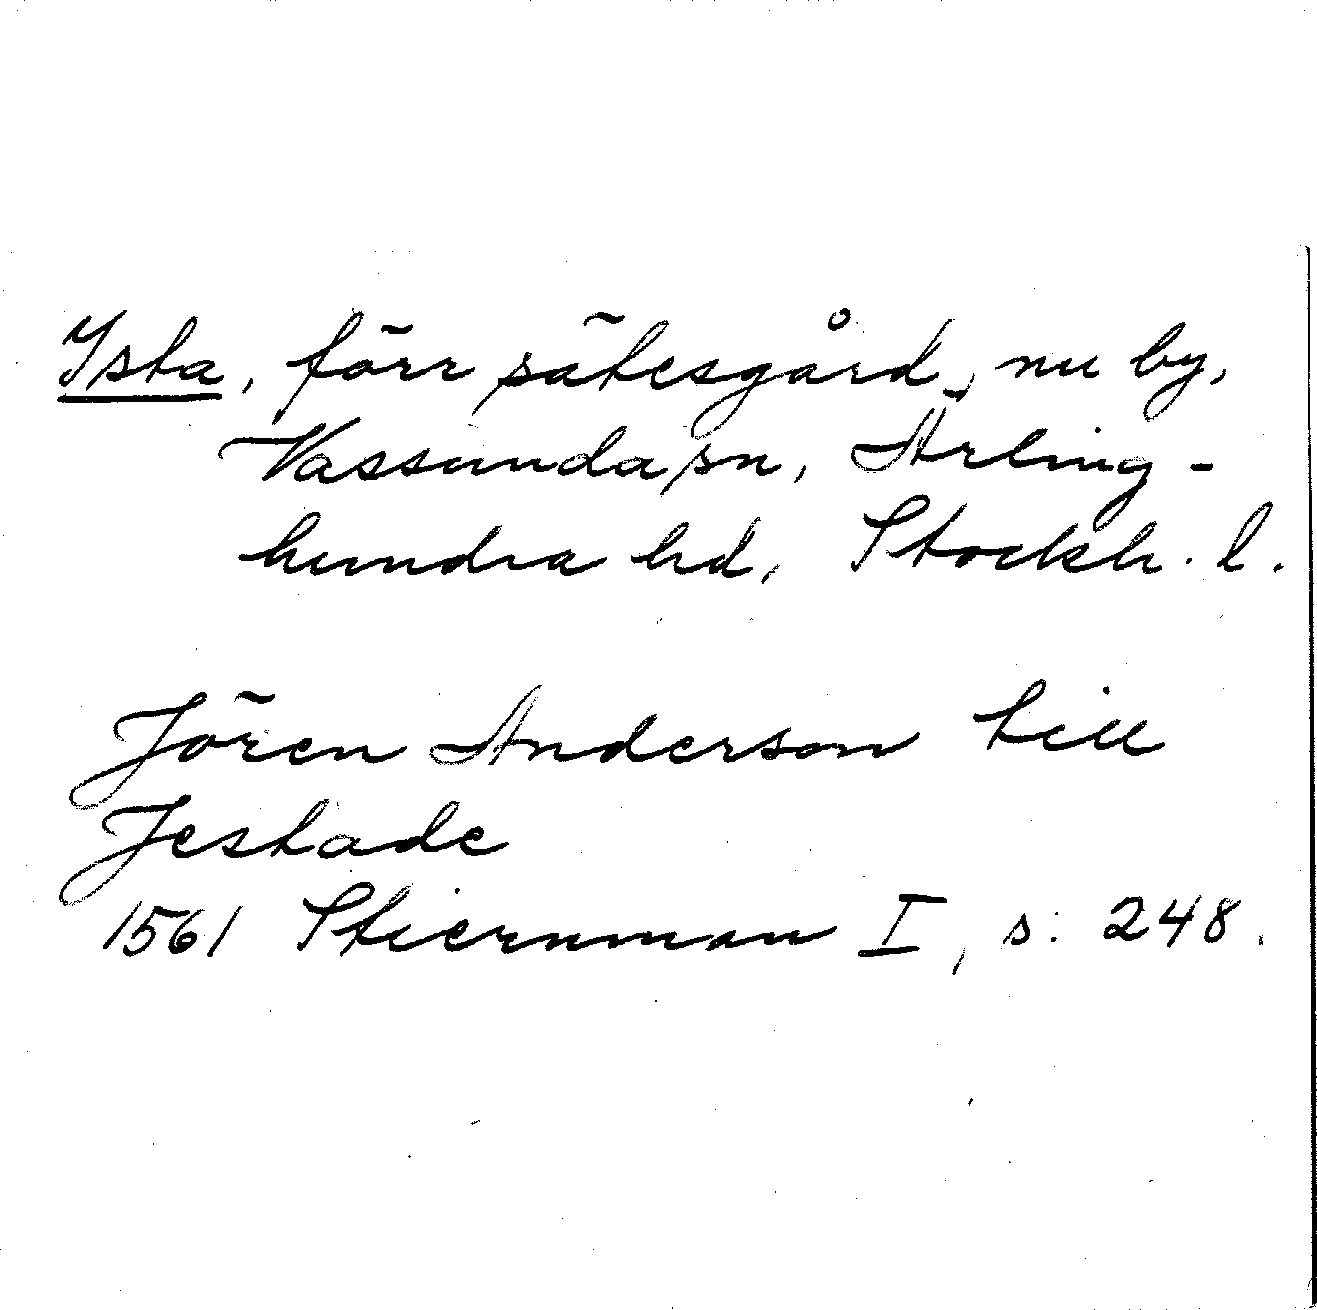 Ysta, förr sätesgård, nu by,
Vassunda sn, Ärling-
hundra hd, Stockh. l.
Jören Anderson till
Jestade
1561 Stiernman I, s. 248.